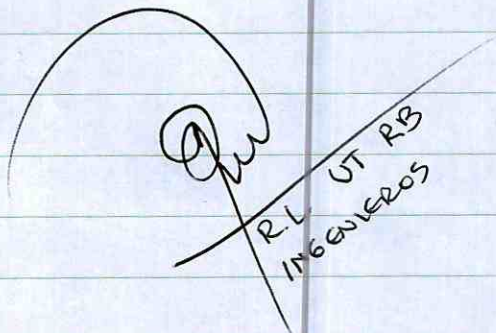 R.L. UT RB
INGENIEROS